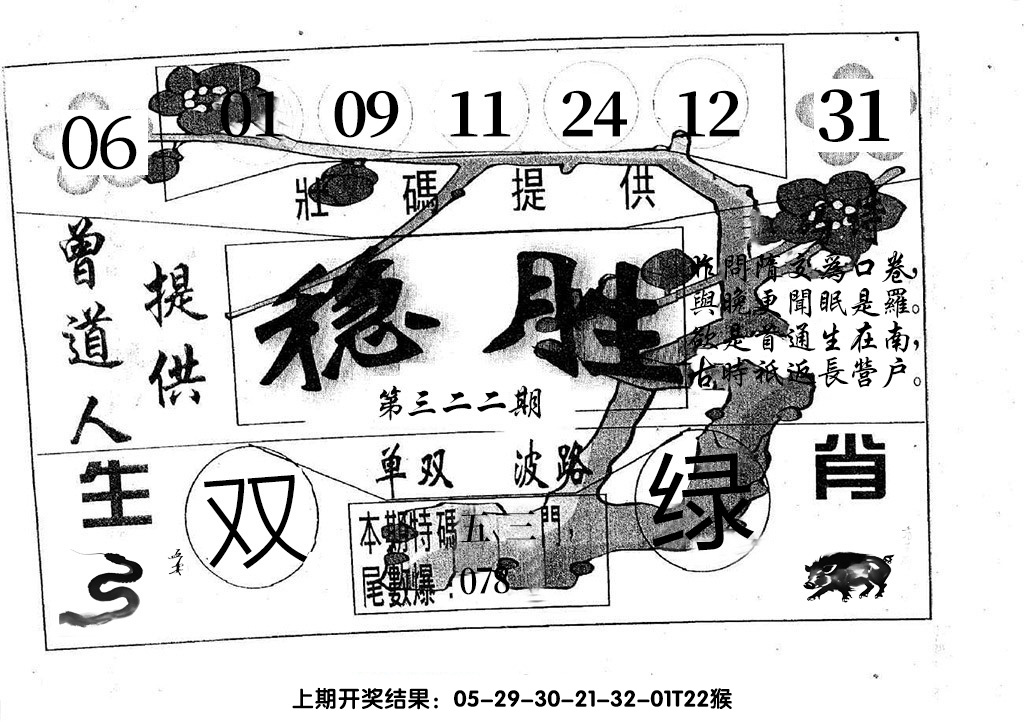 06 01 09 11 24 12 31
壯碼提供
特
曾道人
提供
稳胜
第三二二期
昨問隋交爲口卷，
與晚更聞眠是羅。
欲是首通生在南，
古時祗返長營户。
单双 波路
生 双 绿 肖
本期特碼五、三門，
尾數爆：078
上期开奖结果：05-29-30-21-32-01T22猴